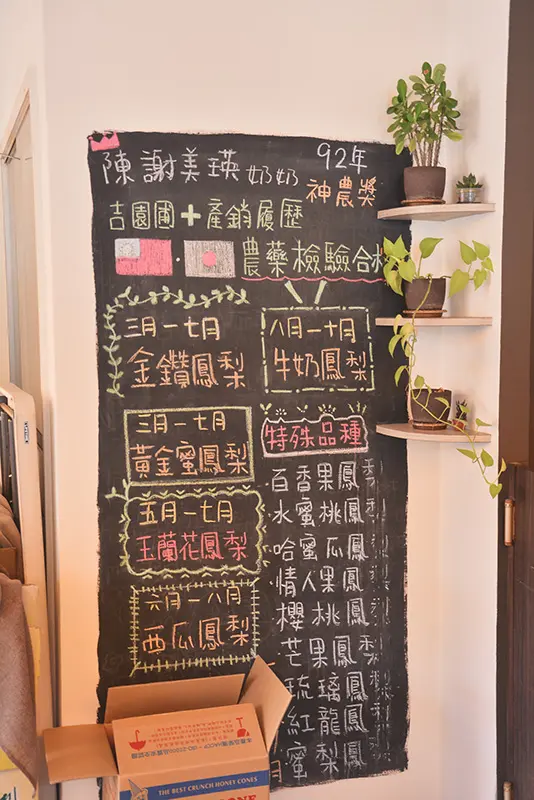 陳謝美瑛奶奶 92年
神農獎
吉園圃+產銷履歷
農藥檢驗合格
三月-七月
金鑽鳳梨
八月-十月
牛奶鳳梨
三月-七月
黃金蜜鳳梨
五月-七月
玉蘭花鳳梨
六月-八月
西瓜鳳梨
特殊品種
百香果鳳梨
水蜜桃鳳梨
哈蜜瓜鳳梨
情人果鳳梨
櫻桃鳳梨
芒果鳳梨
琉璃鳳梨
紅龍鳳梨
蜜鳳梨
THE BEST CRUNCH HONEY CONES